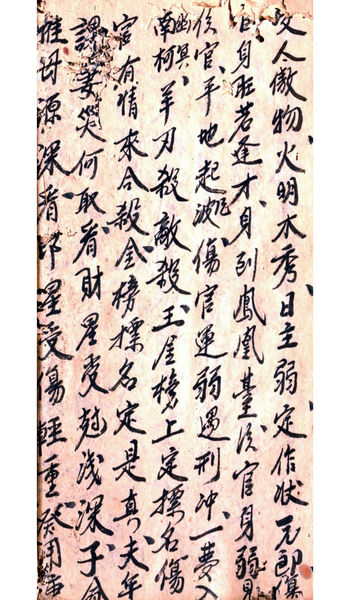 文人傲物火明木秀日主弱定作状元郎傷
官身旺若逢才身到鳳凰臺後官身弱見
侯官平地起風波傷官運弱遇刑冲一夢入
幽冥
南柯羊刃殺敵殺玉屋榜上定標名傷
官有情來合殺金榜標名定是真夫年
謀妻災何取看財星受尅淺深子命
推母源深看印星受傷輕重癸用